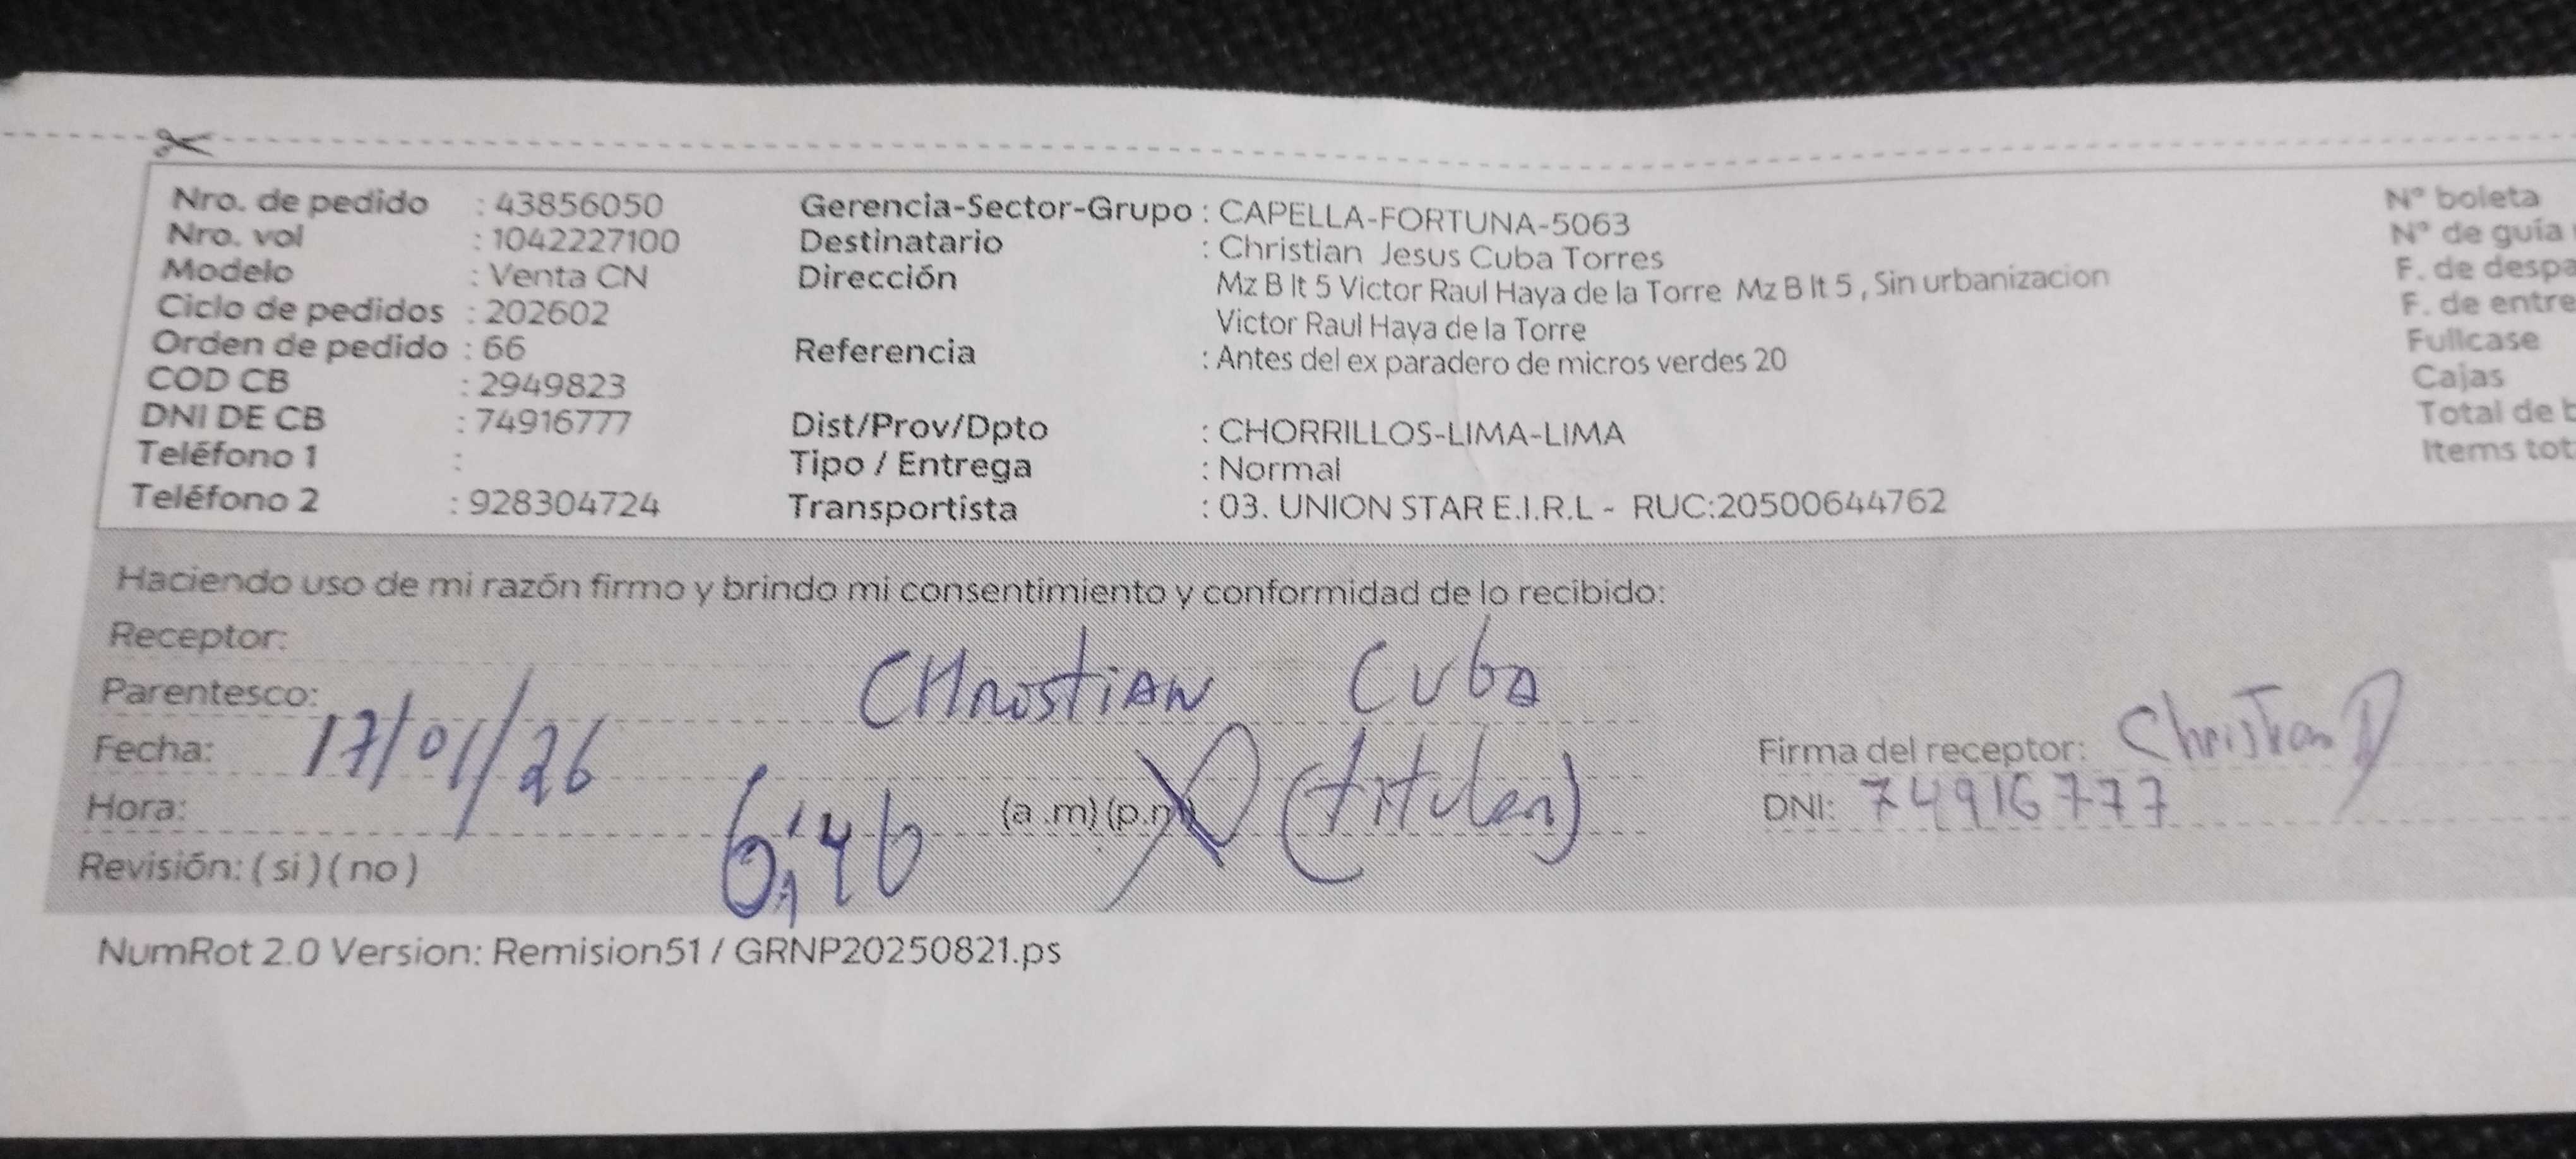 Nro. de pedido : 43856050
Nro. vol : 1042227100
Modelo : Venta CN
Ciclo de pedidos : 202602
Orden de pedido : 66
COD CB : 2949823
DNI DE CB : 74916777
Teléfono 1 :
Teléfono 2 : 928304724
Gerencia-Sector-Grupo : CAPELLA-FORTUNA-5063
Destinatario : Christian Jesus Cuba Torres
Dirección Mz B lt 5 Victor Raul Haya de la Torre Mz B lt 5 , Sin urbanizacion
Victor Raul Haya de la Torre
Referencia : Antes del ex paradero de micros verdes 20
Dist/Prov/Dpto : CHORRILLOS-LIMA-LIMA
Tipo / Entrega : Normal
Transportista : 03. UNION STAR E.I.R.L - RUC:20500644762
N° boleta
N° de guía
F. de despa
F. de entre
Fullcase
Cajas
Total de b
Items tot
Haciendo uso de mi razón firmo y brindo mi consentimiento y conformidad de lo recibido:
Receptor:
CHRISTIAN CUBA
Parentesco:
Fecha: 17/01/26
Hora: 6:46 (a .m) (p.m) (titular)
Revisión: ( si ) ( no )
Firma del receptor: Christian
DNI: 74916777
NumRot 2.0 Version: Remision51 / GRNP20250821.ps